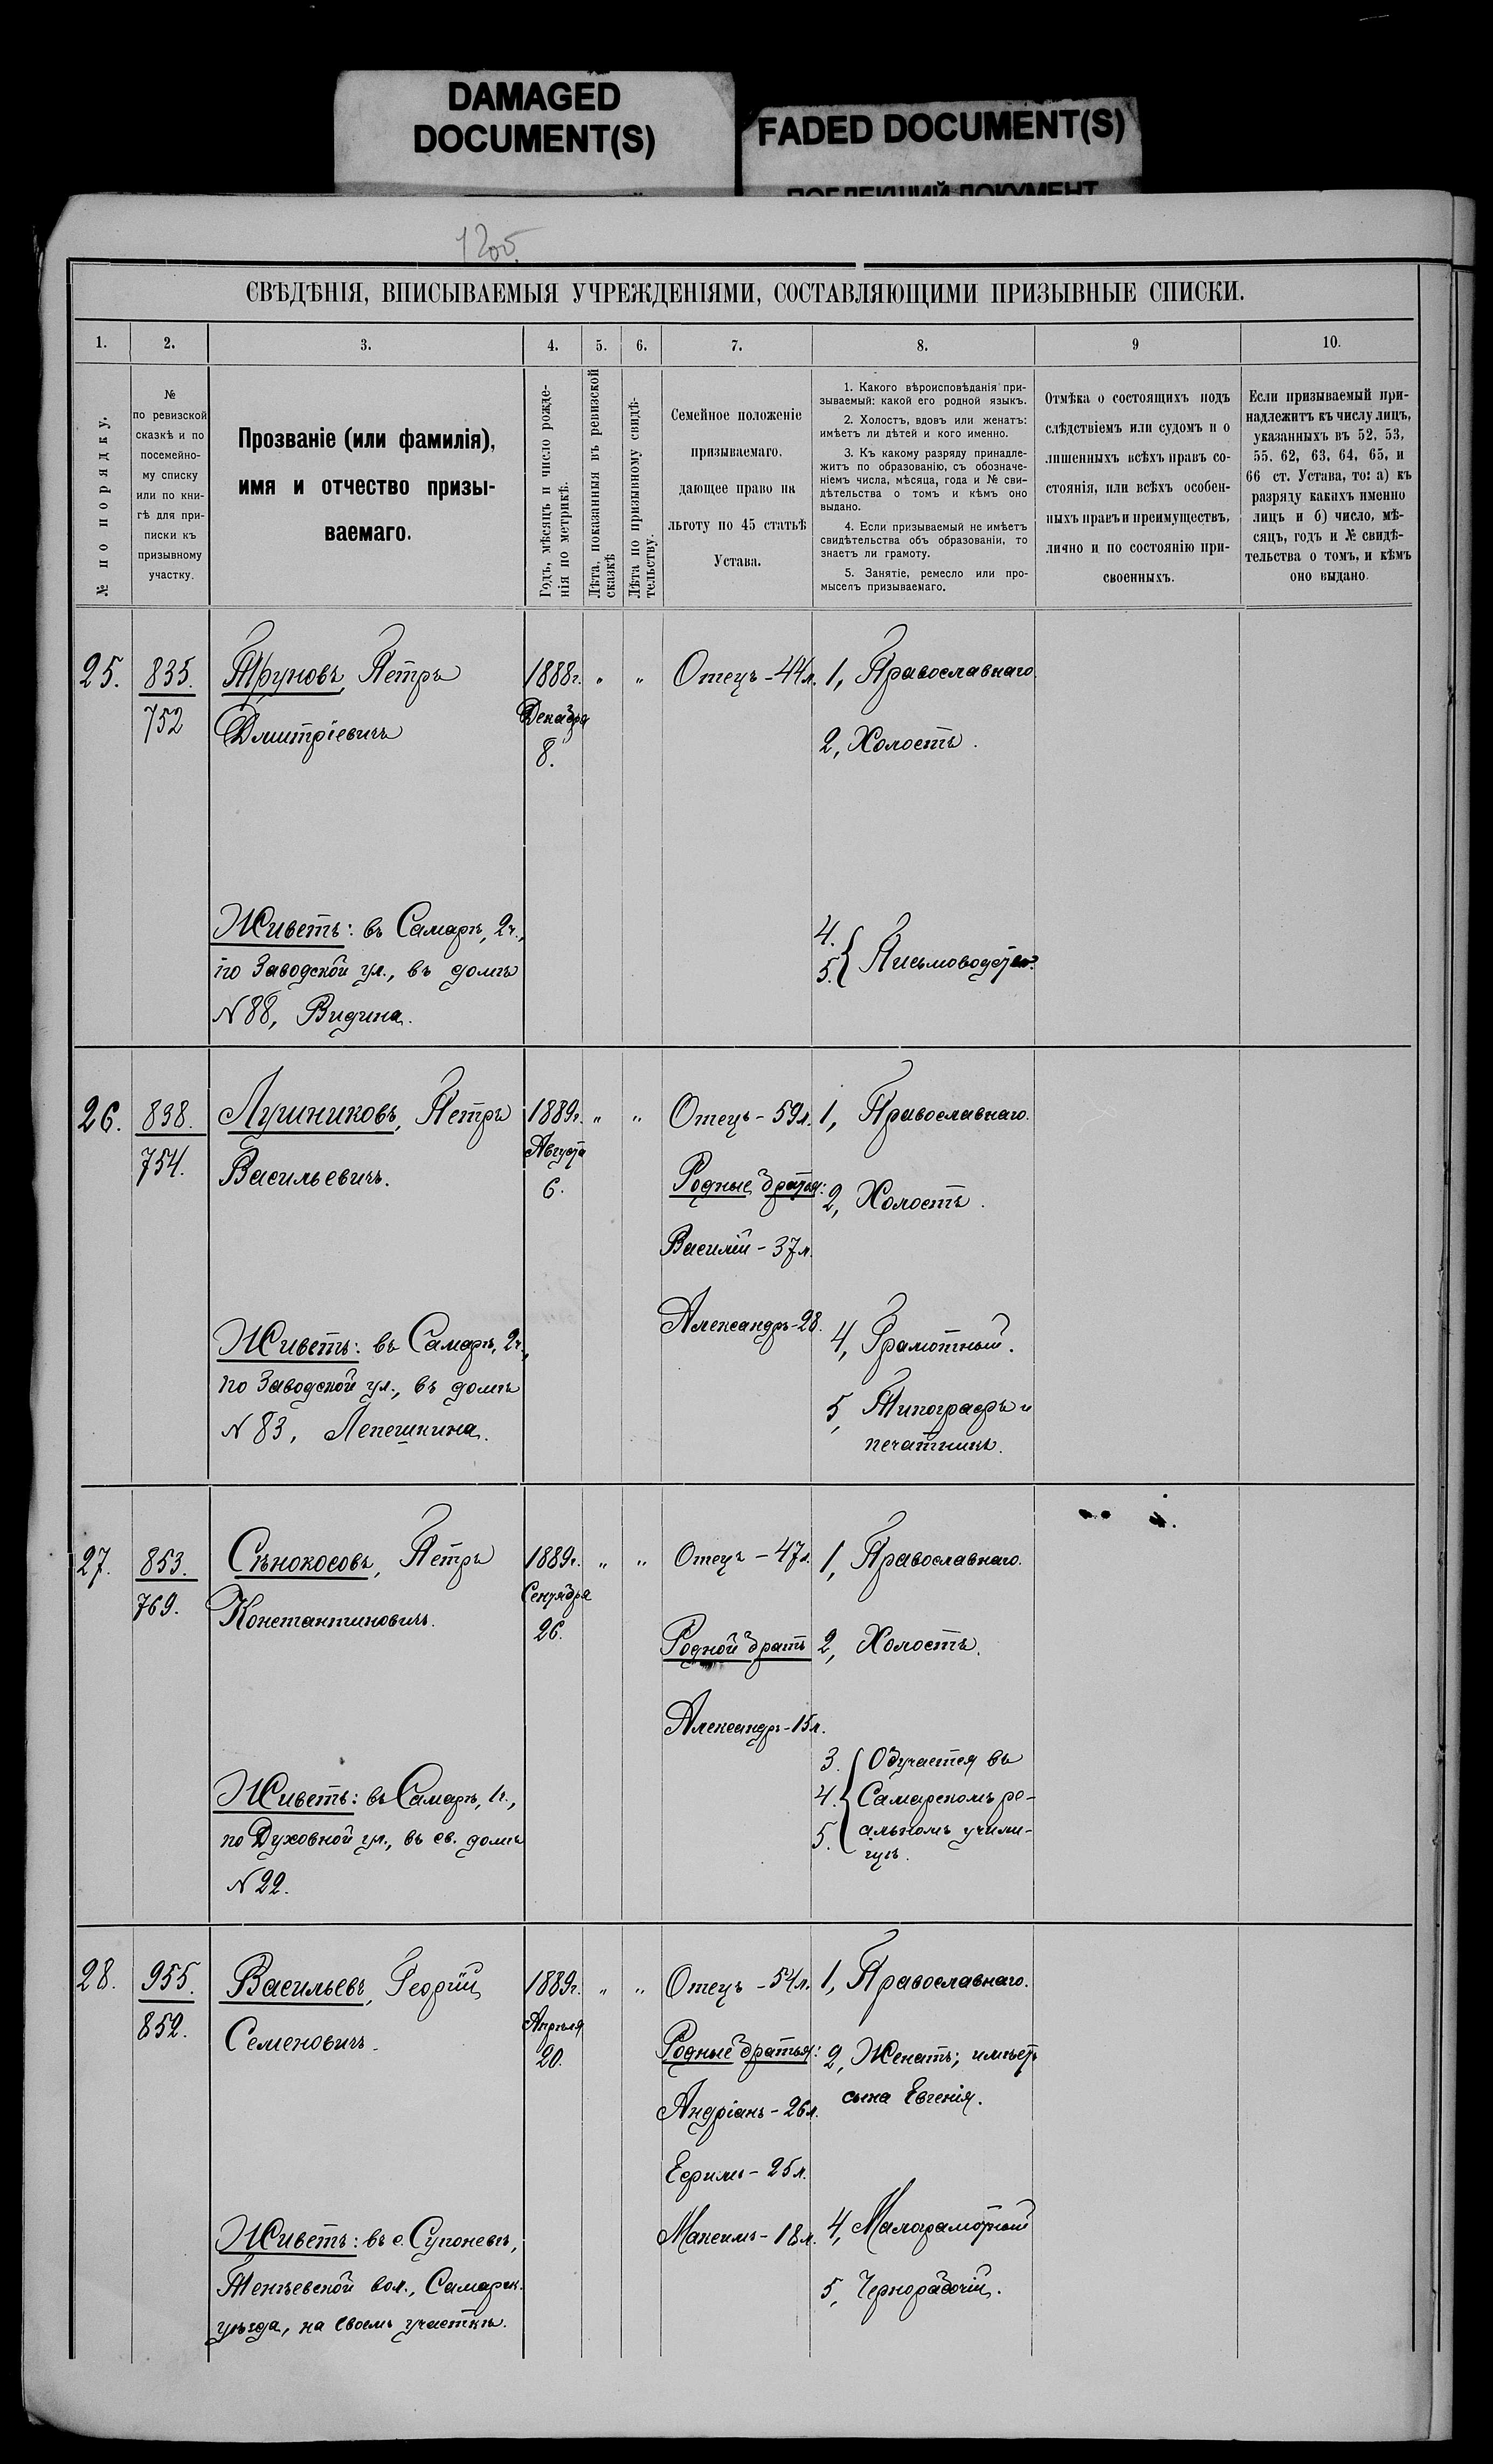 DAMAGED
DOCUMENT(S)
FADED DOCUMENT(S)
1205.
СВѢДѢНІЯ, ВПИСЫВАЕМЫЯ УЧРЕЖДЕНІЯМИ, СОСТАВЛЯЮЩИМИ ПРИЗЫВНЫЕ СПИСКИ.
1. 2. 3. 4. 5. 6. 7. 8. 9 10.
№ по порядку.
№
по ревизской
сказкѣ и по
посемейно-
му списку
или по кни-
гѣ для при-
писки къ
призывному
участку.
Прозваніе (или фамилія),
имя и отчество призы-
ваемаго.
Годъ, мѣсяцъ и число рожде-
нія по метрикѣ.
Лѣта, показанныя въ ревизской
сказкѣ
Лѣта по призывному свидѣ-
тельству.
Семейное положеніе
призываемаго,
дающее право на
льготу по 45 статьѣ
Устава.
1. Какого вѣроисповѣданія при-
зываемый: какой его родной языкъ.
2. Холостъ, вдовъ или женатъ:
имѣетъ ли дѣтей и кого именно.
3. Къ какому разряду принадле-
житъ по образованію, съ обозначе-
ніемъ числа, мѣсяца, года и № сви-
дѣтельства о томъ и кѣмъ оно
выдано.
4. Если призываемый не имѣетъ
свидѣтельства объ образованіи, то
знаетъ ли грамоту.
5. Занятіе, ремесло или про-
мыселъ призываемаго.
Отмѣка о состоящихъ подъ
слѣдствіемъ или судомъ и о
лишенныхъ всѣхъ правъ со-
стоянія, или всѣхъ особен-
ныхъ правъ и преимуществъ,
лично и по состоянію при-
своенныхъ.
Если призываемый при-
надлежитъ къ числу лицъ,
указанныхъ въ 52, 53,
55. 62, 63, 64, 65, и
66 ст. Устава, то: а) къ
разряду какихъ именно
лицъ и б) число, мѣ-
сяцъ, годъ и № свидѣ-
тельства о томъ, и кѣмъ
оно выдано.
25.
835.
752
Труновъ, Петръ
Дмитріевичъ
Живетъ: въ Самарѣ, 2ч.,
по Заводской ул., въ домѣ
N 88, Видина.
1888г.
Декабря
8.
" "
Отецъ - 44л.
1, Православнаго.
2, Холостъ.
4.
5. { Письмоводство.
26.
838.
754.
Лучниковъ, Петръ
Васильевичъ.
Живетъ: въ Самарѣ, 2ч.,
по Заводской ул., въ домѣ
N 83, Лепешкина.
1889г.
Августа
6.
" "
Отецъ - 59л.
Родные братья:
Василій - 37л.
Александръ - 28.
1, Православнаго.
2, Холостъ.
4, Грамотный.
5, Типографъ и
печатникъ.
27.
853.
769.
Сѣнокосовъ, Петръ
Константиновичъ.
Живетъ: въ Самарѣ, 1ч.,
по Духовной ул., въ св. домѣ
N 22.
1889г.
Сентября
26.
" "
Отецъ - 47л.
Родной братъ
Александръ - 15л.
1, Православнаго.
2, Холостъ.
3. { Обучается въ
4. Самарскомъ ре-
5. альномъ учили-
щѣ.
28.
955.
852.
Васильевъ, Георгій
Семеновичъ.
Живетъ: въ с. Супоневѣ,
Тенѣевской вол., Самарск.
уѣзда, на своемъ участкѣ.
1889г.
Апрѣля
20.
" "
Отецъ - 54л.
Родные братья:
Андріанъ - 26л.
Ефимъ - 25л.
Максимъ - 18л.
1, Православнаго.
2, Женатъ; имѣетъ
сына Евгенія.
4, Малограмотный
5, Чернорабочій.